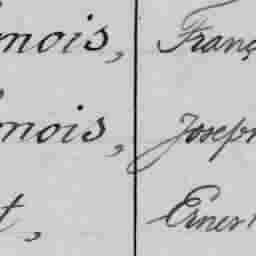 mois, Franç
mois, Joseph
t, Ernest